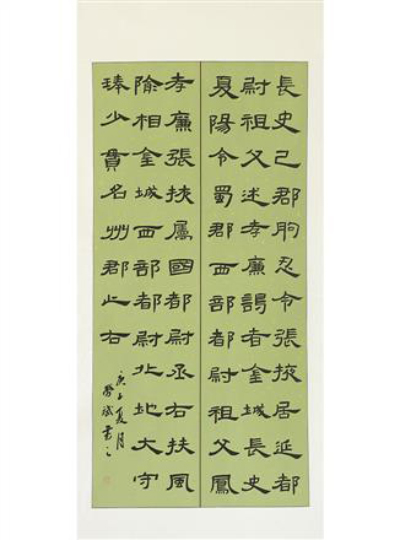 長史己郡朐忍令張掖居延都
尉祖父述孝廉謁者金城長史
夏陽令蜀郡西部都尉祖父鳳
孝廉張挾屬國都尉丞右扶風
隃相金城西部都尉北地大守
琫少貫名州郡之右
庚子夏月
書之